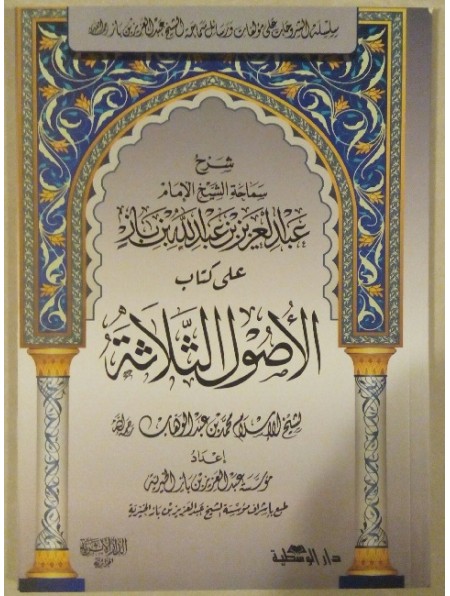 سلسلة الشروحات على مؤلفات ورسائل سماحة الشيخ عبد العزيز بن باز
شرح
سماحة الشيخ الإمام
عبد العزيز بن عبد الله بن باز
على كتاب
الأصول الثلاثة
لشيخ الإسلام محمد بن عبد الوهاب رحمه الله
إعداد
مؤسسة عبد العزيز بن باز الخيرية
طبع بإشراف مؤسسة الشيخ عبد العزيز بن باز الخيرية
دار الوسطية
الدار الأثرية